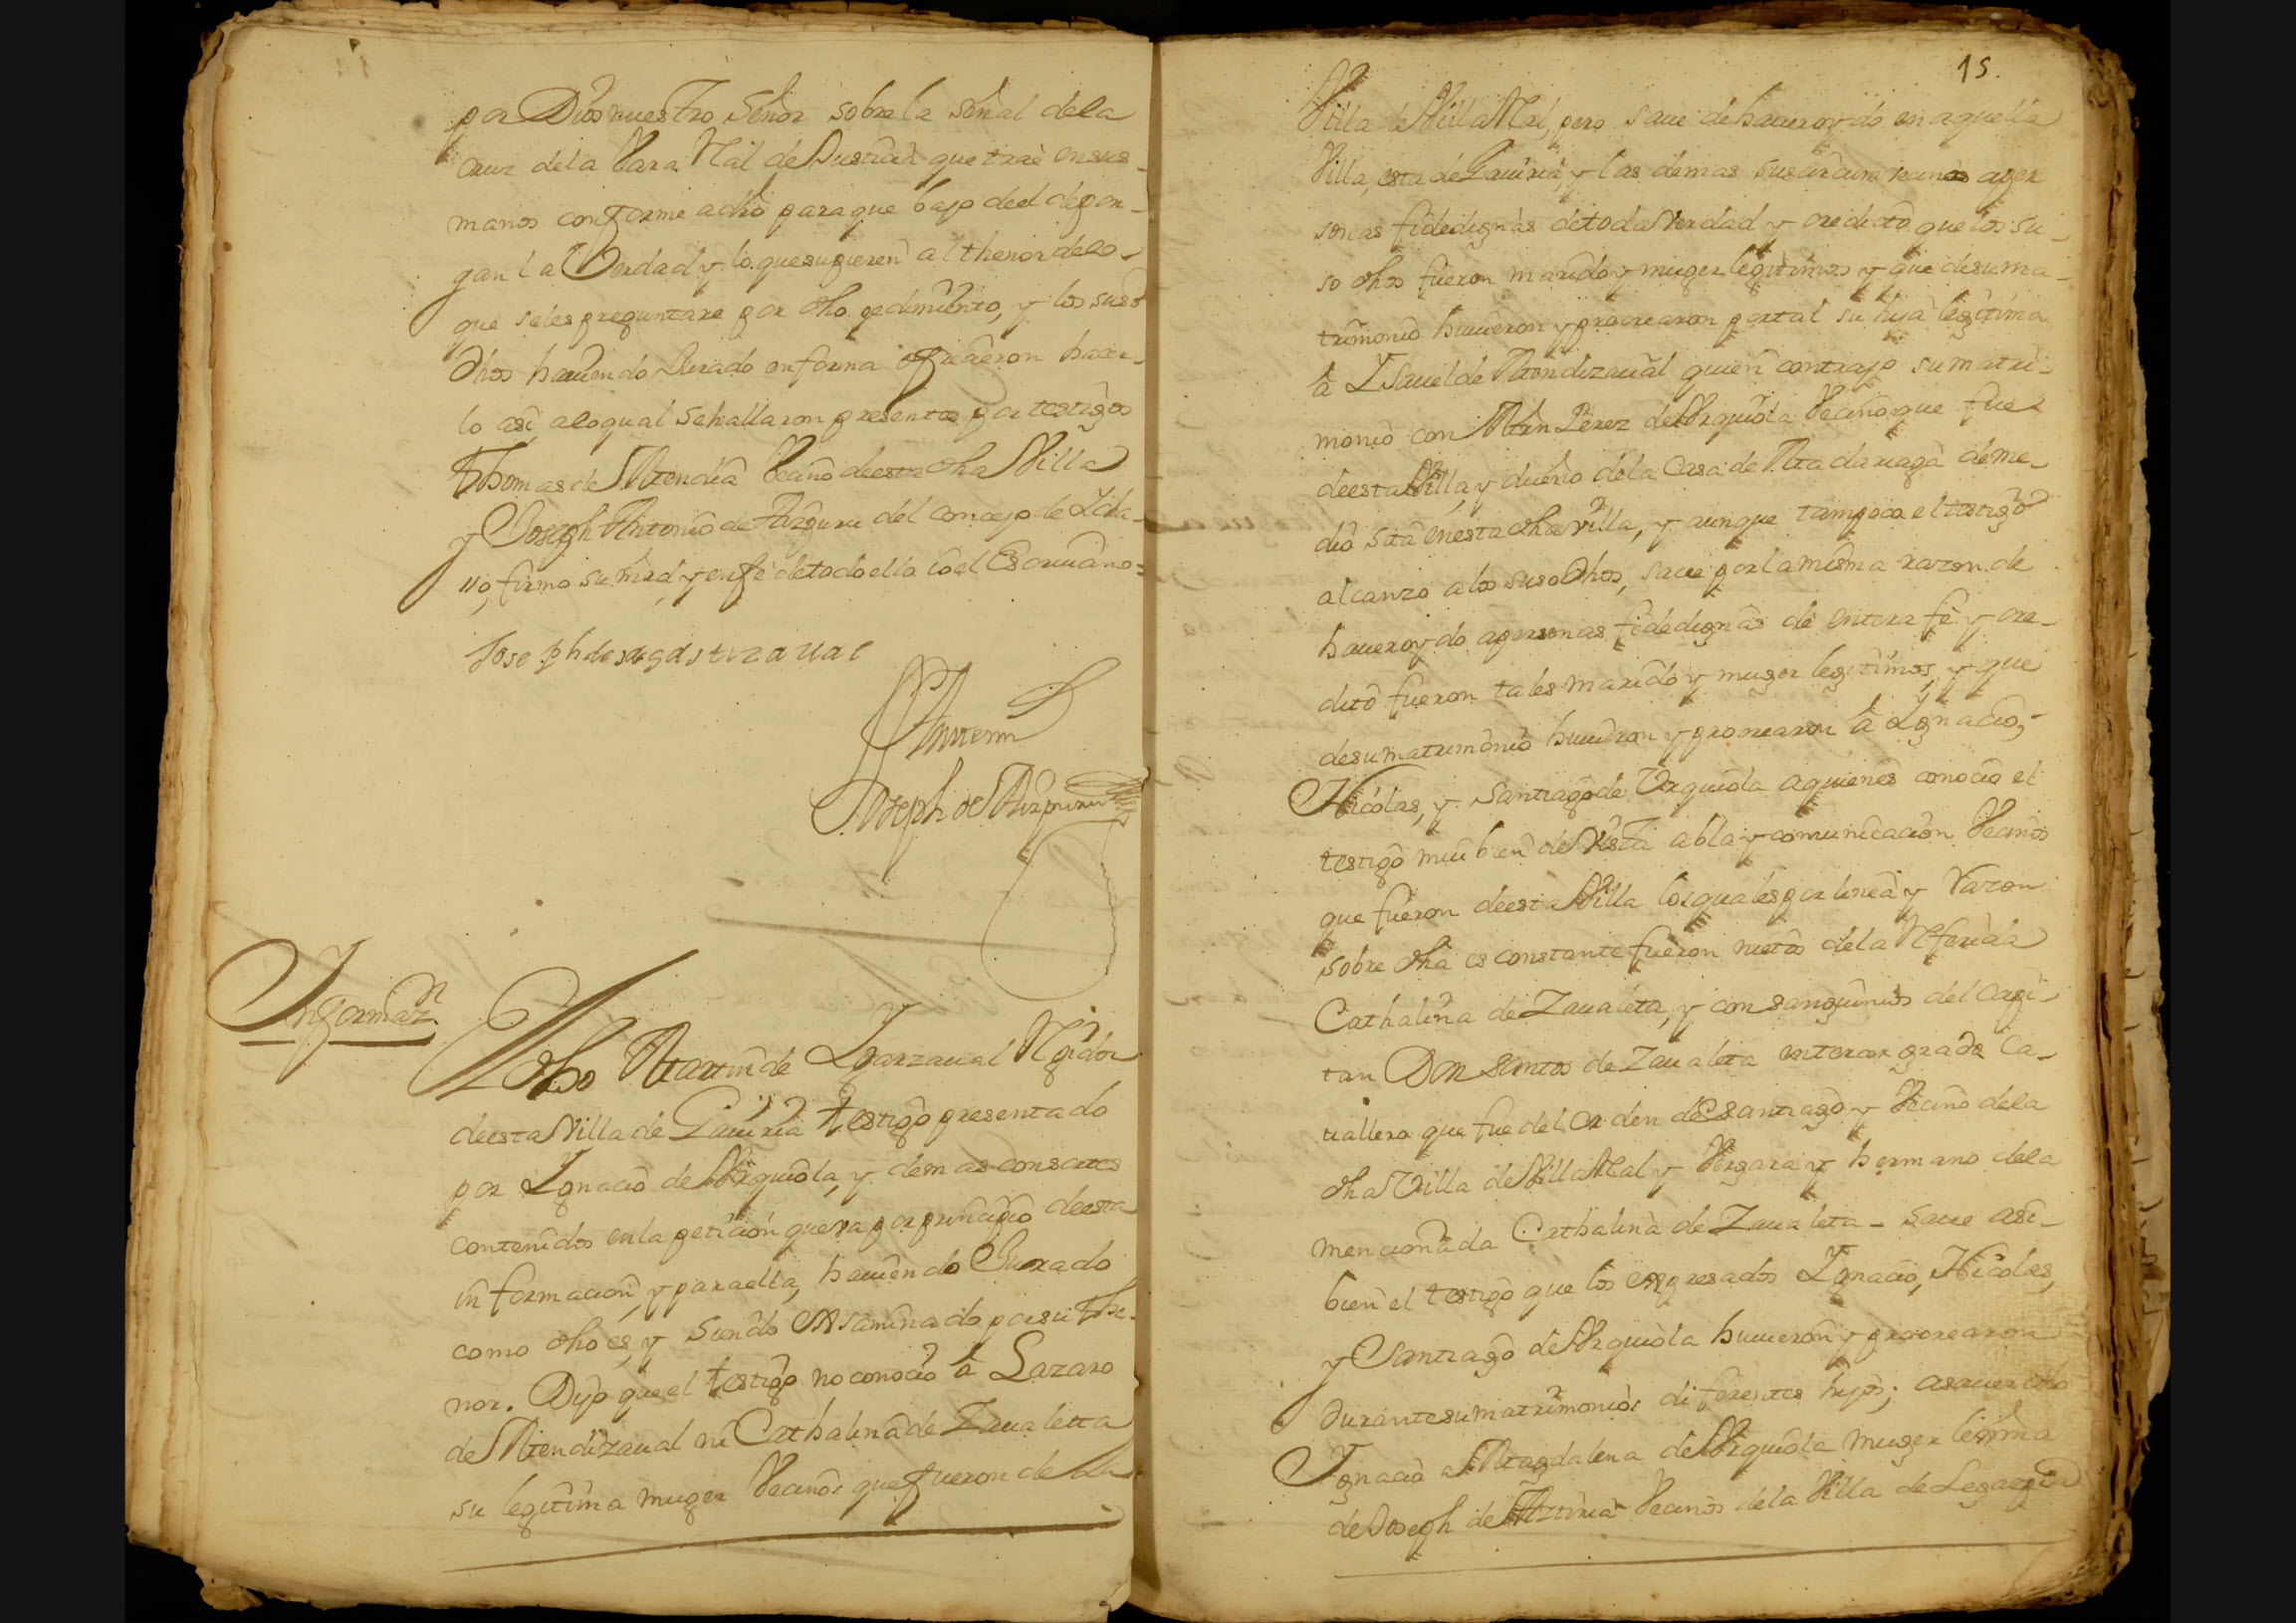 por Dios nuestro Señor sobre la señal dela
cruz dela Vara Rl de Justicia que trae en sus
manos conforme a dro para que bajo de el depon-
gan la Verdad y lo que supieren al thenor delo
que seles preguntare por dho pedimiento, y los suso
dhos hauiendo Jurado en forma ofrecieron hacer-
lo asi, alo qual se hallaron presentes por testigos
Thomas de Mendia Vecino de esta dha Villa
y Joseph Antonio de Aizpuru del concejo de Zcha-
no, firmo su mrd, y en fe de todo ello io el Escriuano =
Joseph de sagastizaual
Ante mi
Joseph de Aizpuru
Informazn
El dho Martin de Ygarzaual Regidor
de esta Villa de Gauiria testigo presentado
por Ygnacio de Vrquiola, y demas consortes
contenidos en la peticion que va por principio de esta
informacion, y para ella, hauiendo Jurado
como dho es, y siendo exsaminado por su the-
nor. Dijo que el testigo no conocio â Lazaro
de Mendizaual ni Cathalina de Zaualetta
su legitima muger Vecinos que fueron de la
15.
Villa de Villa Rl, pero saue de hauer oydo en aquella
Villa, esta de Gauiria, y las demas sus circumvecinas a per
sonas fidedignas de toda Verdad y credicto que los su-
so dhos fueron marido y muger legitimos y que de su ma-
trimonio huuieron y procrearon por tal su hija legitima
â Ysauel de Mendizaual quien contrajo su matri-
monio con Mrn Perez de Vrquiola Vecino que fue
de esta Villa, y dueño dela Casa de Madariaga de me-
dio sita en esta dha villa, y aunque tampoco el testigo
alcanzo a los suso dhos, saue por la misma razon de
hauer oydo a personas fidedignas de entera fe y cre-
dito fueron tales marido y muger legitimos, y que
de su matrimonio huuieron y procrearon â Ygnacio,
Nicolas, y Santiago de Vrquiola a quienes conocio el
testigo mui bien de Vista abla y comunicacion Vecinos
que fueron de esta Villa los quales por linea y Razon
sobre dha es constante fueron nietos dela Referida
Cathalina de Zaualeta, y consanguineos del Capi-
tan Don Santos de Zaualeta en tercer grado Ca-
uallero que fue del orden de Santiago y Vecino dela
dha Villa de Villa Real y Vergara y hermano dela
mencionada Cathalina de Zaualeta - saue asi-
bien el testigo que los expresados Ygnacio, Nicolas,
y Santiago de Vrquiola huuieron y procrearon
durante su matrimonios diferentes hijos; a sauer dho
Ygnacio a Magdalena de Vrquiola muger legitima
de Joseph de Aztiria Vecinos dela Villa de Legazpia